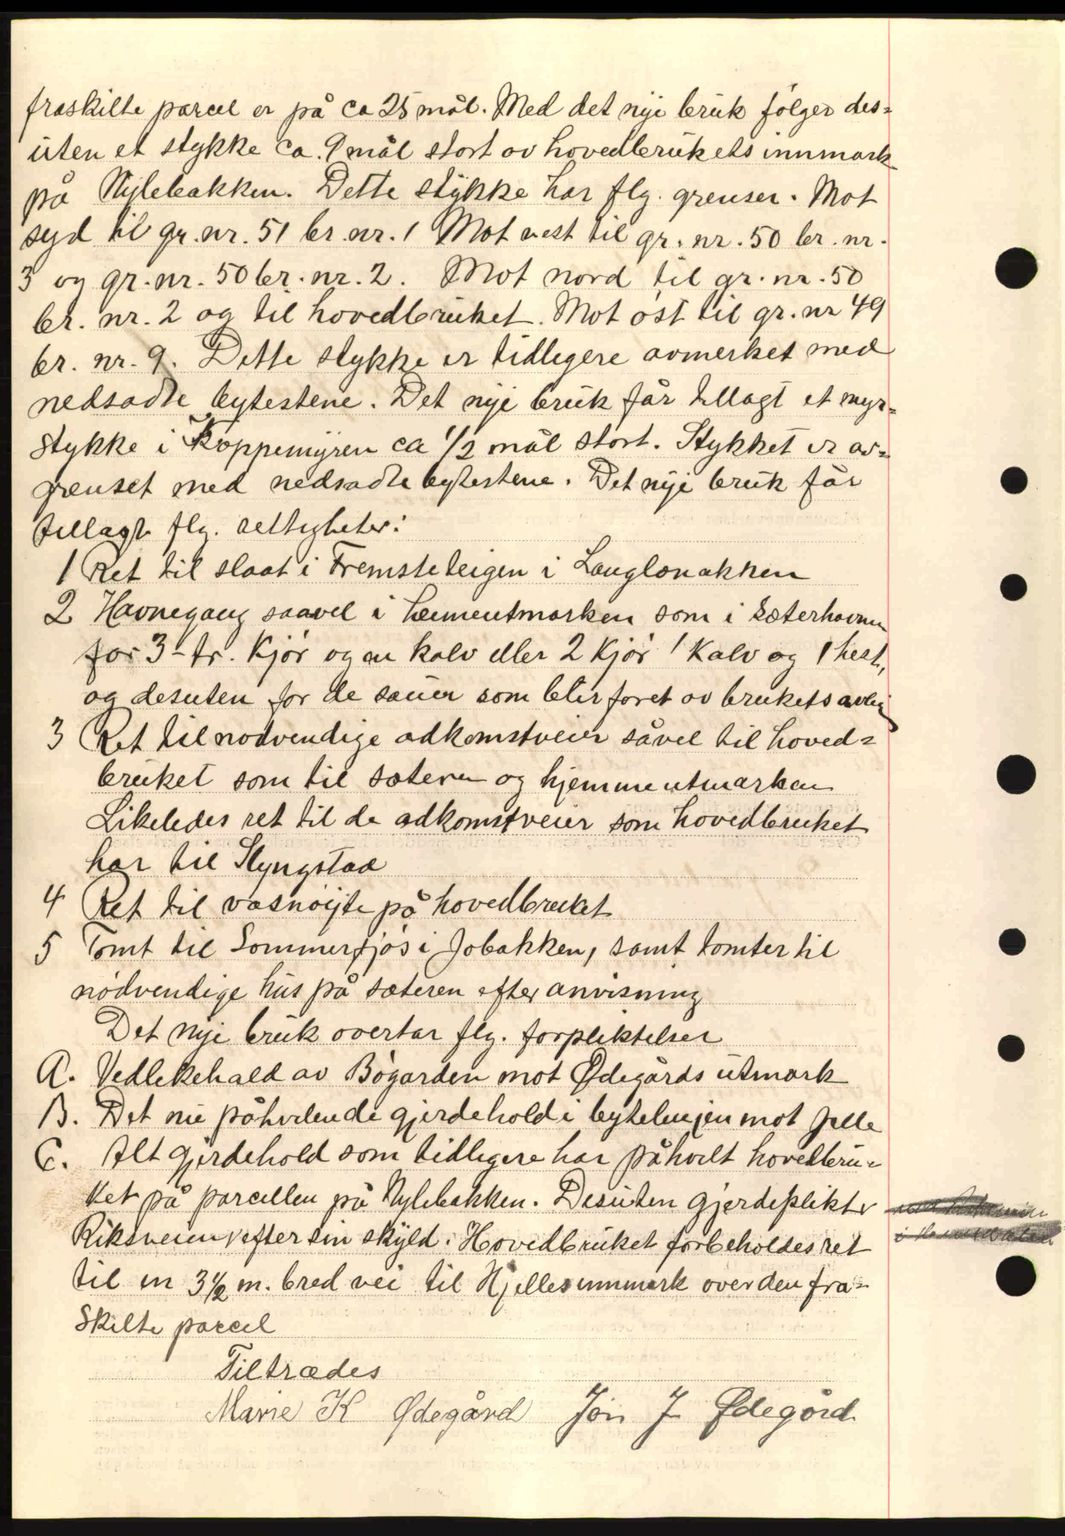 fraskilte parcel er på ca 25 mål. Med det nye bruk følger des=
uten et stykke ca. 9 mål stort av hovedbrukets innmark
på Nylebakken. Dette stykke har flg. grenser. Mot
syd til gr. nr. 51 br. nr. 1 Mot vest til gr. nr. 50 br. nr.
3 og gr. nr. 50 br. nr. 2. Mot nord til gr. nr. 50
br. nr. 2 og til hovedbruket. Mot øst til gr. nr 49
br. nr. 9. Dette stykke er tidligere avmerket med
nedsadte bytestene. Det nye bruk får tillagt et myr=
stykke i Koppemyren ca 1/2 mål stort. Stykket er av=
grenset med nedsadte bytestene. Det nye bruk får
tillagt flg. rettigheter:
1 Ret til slaat i Fremsteteigen i Langlonakken
2 Havnegang saavel i heimeutmarken som i sæterhavnen
for 3 - tr. Kjør og en kalv eller 2 Kjør 1 Kalv og 1 hest,
og desuten for de sauer som blir foret av brukets avling
3 Ret til nødvendige adkomstveier såvel til hoved=
bruket som til sæteren og hjemmeutmarken
Likeledes ret til de adkomstveier som hovedbruket
har til Slyngstad
4 Ret til vasnøijte på hovedbruket
5 Tomt til Sommerfjøs i Jobakken, samt tomter til
nødvendige hus på sæteren efter anvisning
Det nye bruk overtar flg. forpliktelser
A. Vedlikehald av Bøgarden mot Ødegårds utmark
B. Det nu påhvilende gjerdehold i bytelinjen mot Jelle
C. Alt gjerdehold som tidligere har påhvilt hovedbru=
ket på parcellen på Nylebakken. Desuten gjerdeplikt v
Riksveien efter sin skyld. Hovedbruket forbeholdes ret
til en 3 1/2 m. bred vei til Hjelles innmark over den fra=
skilte parcel
Tiltrædes
Marie K Ødegård Jon J Ødegård